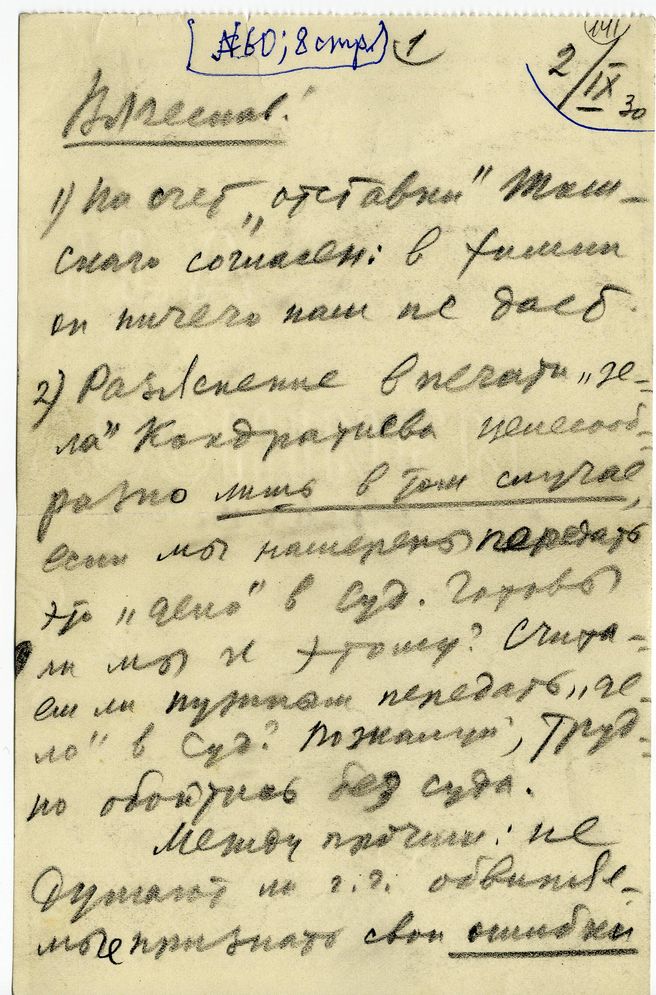 [№60; 8 стр.] 1
141
2/IX 30
Вячеслав!
1) Насчет „отставки"
скаго согласен: в Химии
он ничего нам не даст.
2) Разяснение в печати „де-
ла" Кондратиева целесооб-
разно лишь в том случае,
если мы намерены передать
это „дело" в суд. Готовы
ли мы к этому? Счита-
ем ли нужным передать „де-
ло" в суд? Пожалуй, труд-
но обойтись без суда.
Между прочим: не
думают ли г.г. обвиняе-
мые признать свои ошибки